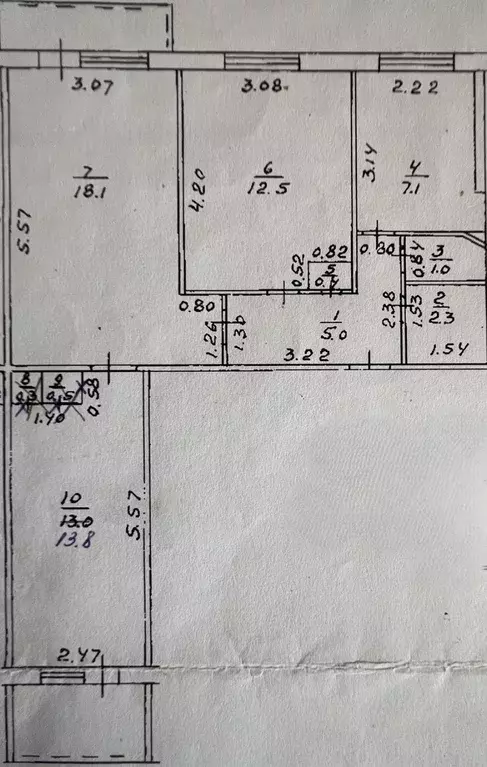 3.07
3.08
2.22
7
18.1
6
12.5
4
7.1
5.57
4.20
3.14
0.82
0.52
5
0.4
0.30
0.84
3
1.0
0.80
1.26
1.30
1
5.0
2.38
1.53
2
2.3
3.22
1.54
8
0.3
9
0.5
0.58
1.40
10
13.0
13.8
5.57
2.47